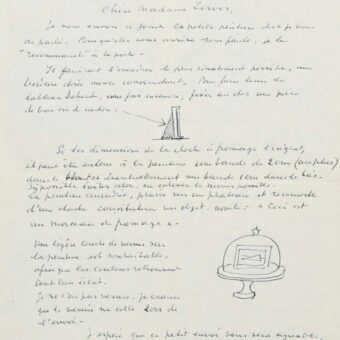 Chère Madame Zervos,
Je vous envoie ci-joint la petite peinture dont je vous
ai parlé. Pour qu'elle vous arrive sans faute, je la
"recommande" à la poste.
Il faudrait l'encadrer le plus simplement possible, une
très mince conviendrait. Pour faire tenir ce
tableau debout, une fois encadré, fixer au dos une pièce
de bois ou de carton:
Si les dimensions de la cloche à fromage l'exigent,
il peut être enlevé à la peinture une bande de 2cm (au plus)
dans le haut et éventuellement une bande 1cm dans le bas.
Si possible éviter cela, ou enlever le moins possible.
La peinture encadrée, placée sur un plateau et recouverte
d'une cloche constituera un objet intitulé: "Ceci est
un morceau de fromage".
Une légère couche de vernis sur
la peinture est souhaitable,
afin que les couleurs retrouvent
tout leur éclat.
Je ne l'ai pas vernie, je crains
que le vernis ne colle lors de
l'envoi.
J'espère que ce petit envoi vous sera agréable,